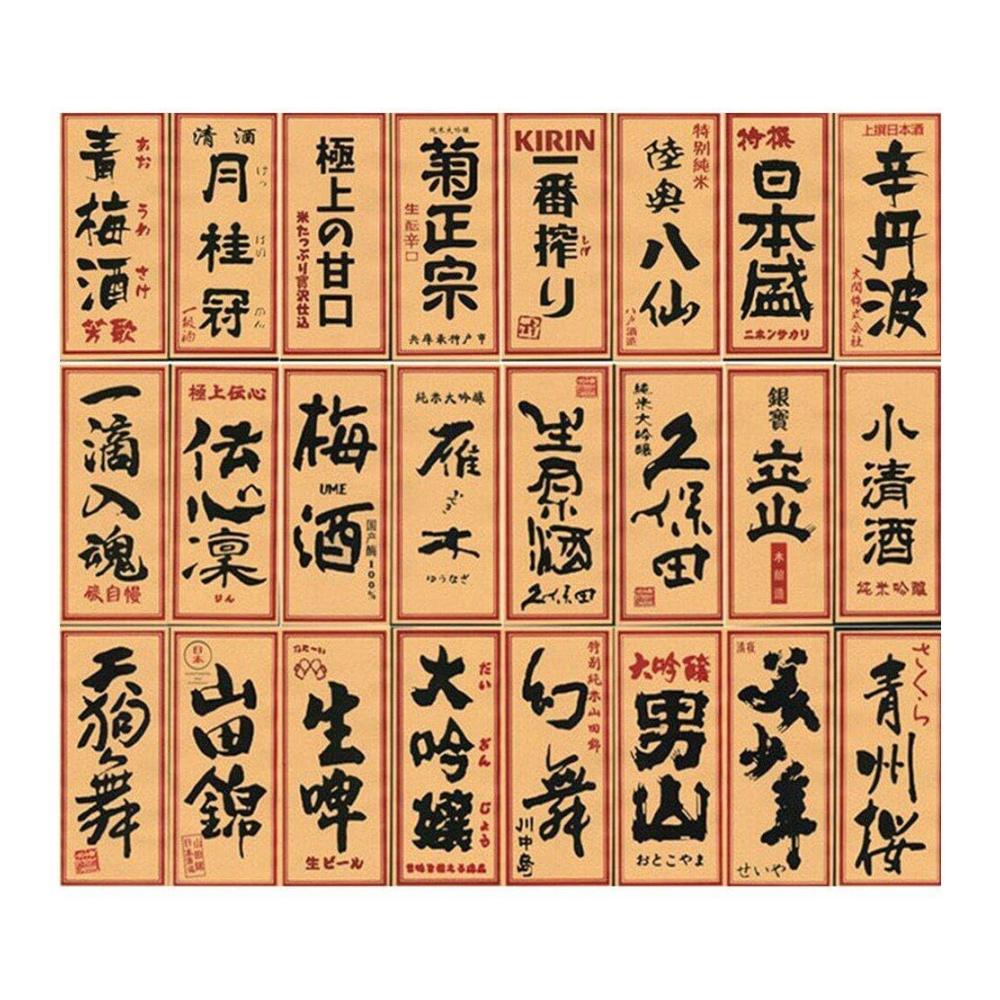 青梅酒
あお
うめ
さけ
芳歌
清酒
月桂冠
げっ
けい
かん
一級酒
極上の甘口
米たっぷり贅沢仕込
純米大吟醸
菊正宗
生酛辛口
兵庫県神戸市
KIRIN
一番搾り
しぼ
特別純米
陸奥八仙
八戸酒造
特撰
日本盛
ニホンサカリ
上撰日本酒
辛丹波
大関株式会社
一滴入魂
蔵自慢
極上伝心
伝心凛
りん
梅酒
UME
国产酶100%
純米大吟醸
雁木
ゆうなぎ
生原酒
久保田
純米大吟醸
久保田
銀寶
立山
本醸造
小清酒
純米吟醸
天狗舞
日本
山田錦
山田錦
日本酒蔵
生啤
生ビール
大吟醸
だい
ぎん
じょう
特別純米山田錦
幻舞
川中島
大吟醸
男山
おとこやま
清夜
美少年
せいや
さくら
青州桜